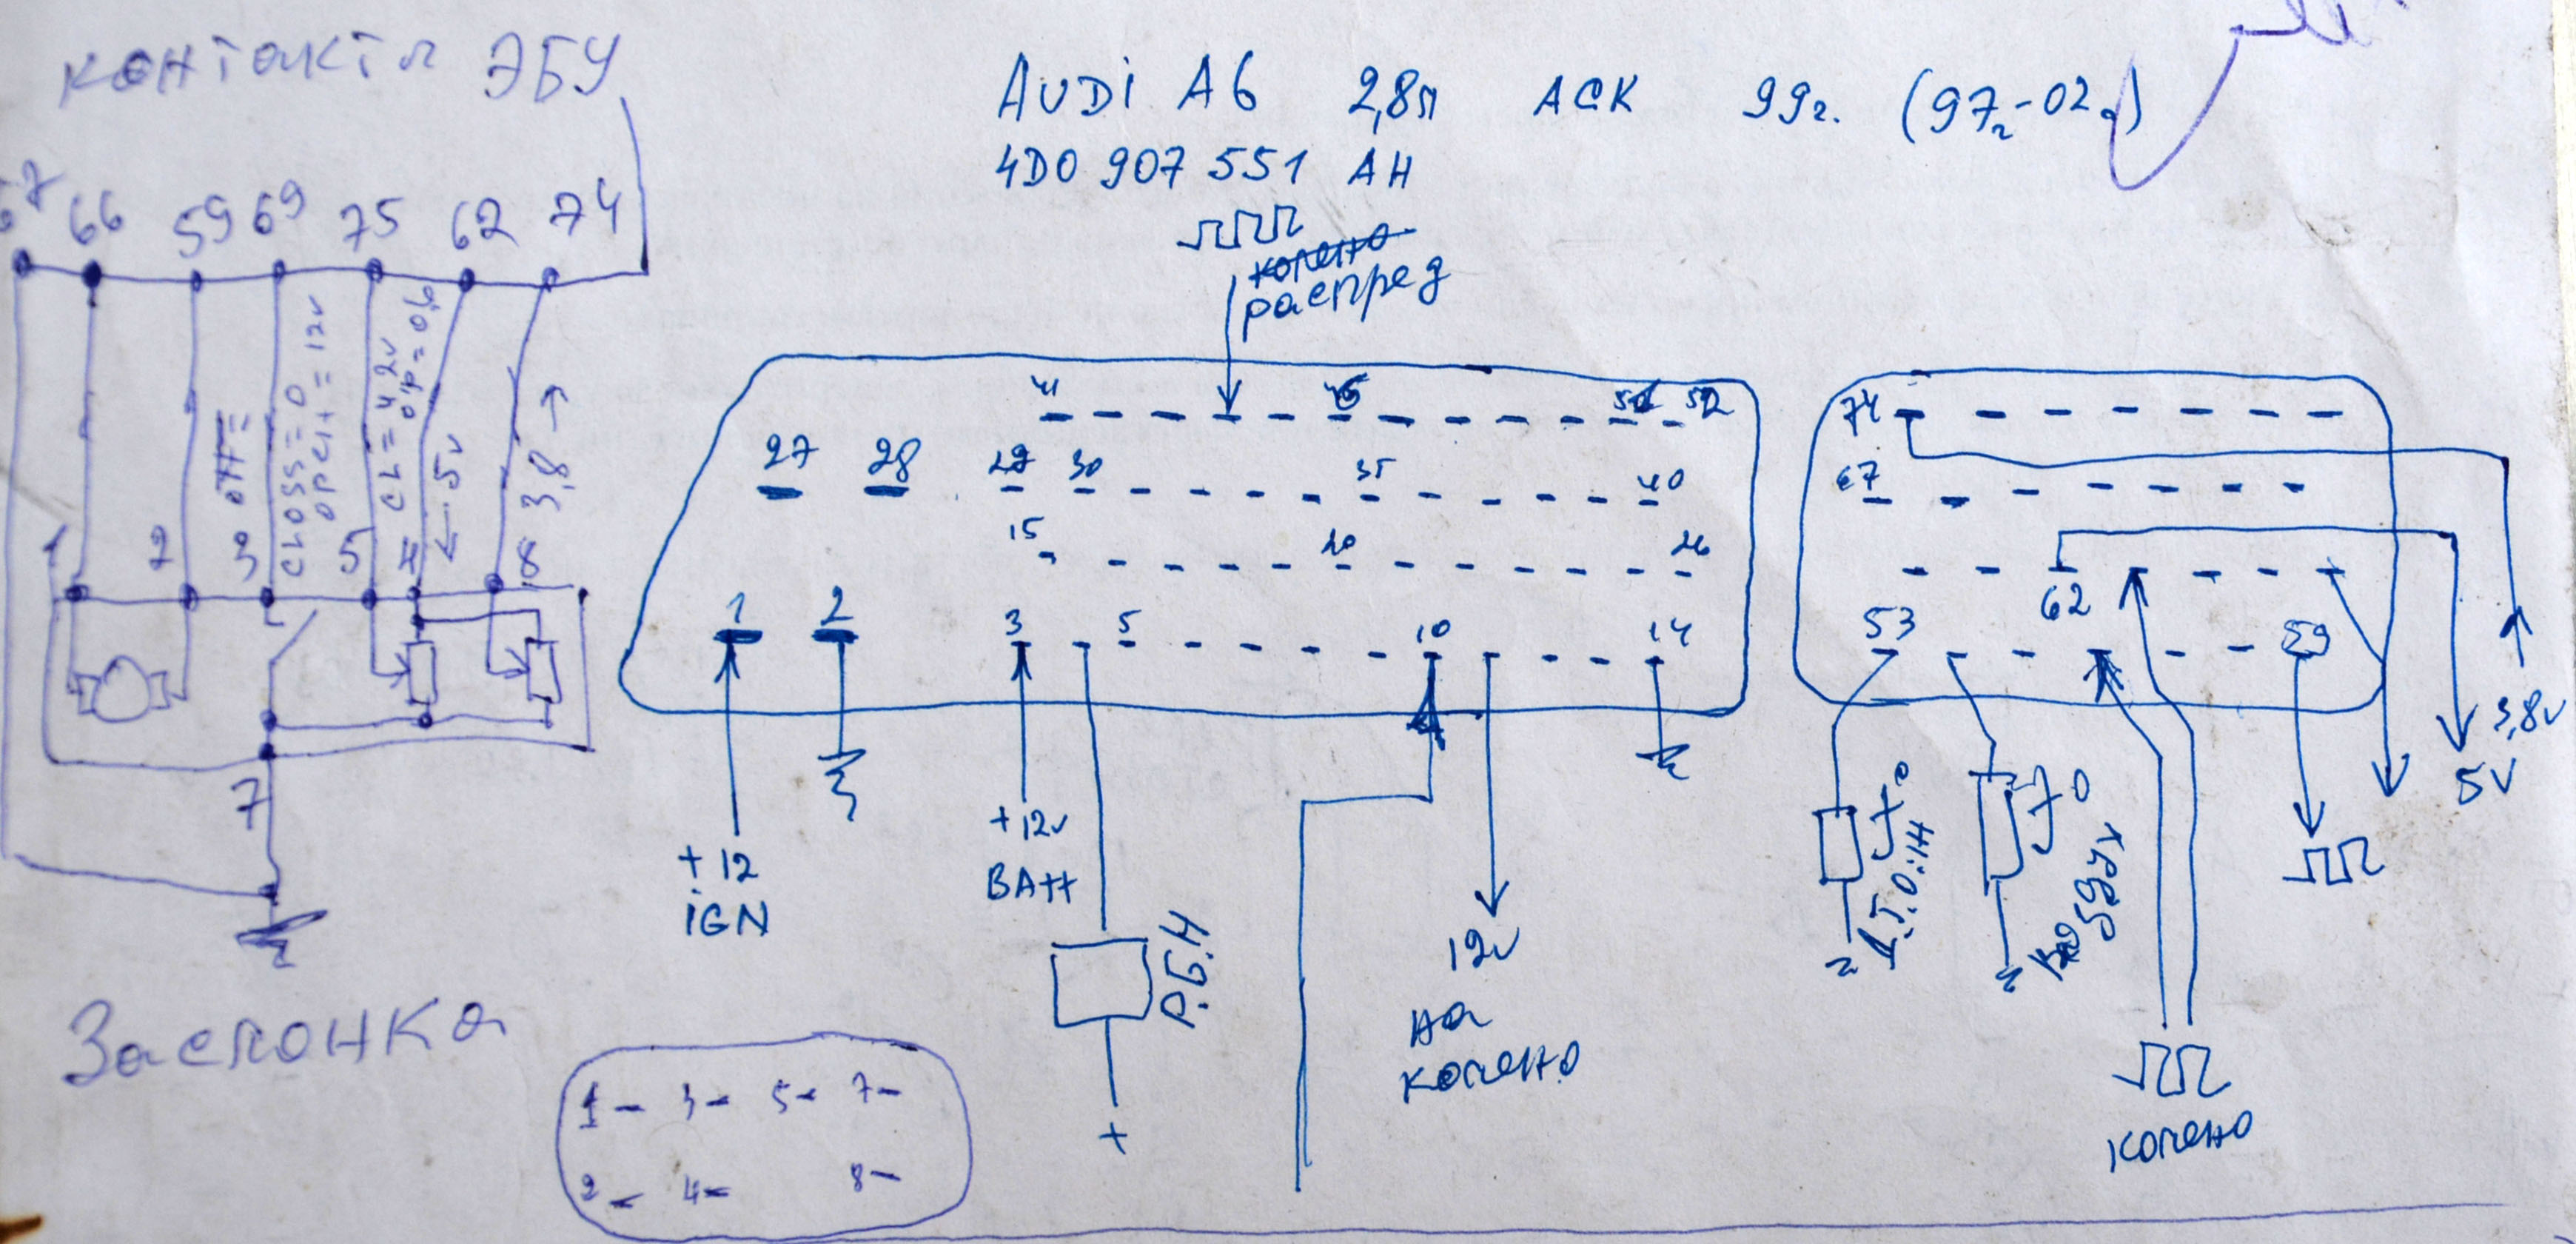 контакты ЭБУ
67 66 59 69 75 62 74
AUDI A6 2,8л ACK 99г. (97г-02г)
4D0 907 551 AH
колено
распред
OTT=
CLOSS=0
OPEN=12v
CL=4,2v
OP=0,6
5v
3,8
1 2 3 5 4 8
7
Заслонка
41 46 51 52
27 28 29 30 35 40
15 20 26
1 2 3 5 10 14
+12
IGN
+12v
BATT
Р.Б.Н
+
12v
на
колено
74
67
62
53 59
t°
Д.Т.О.Ж
t°
воздух
колено
5V
3,8v
1 3 5 7
2 4 8